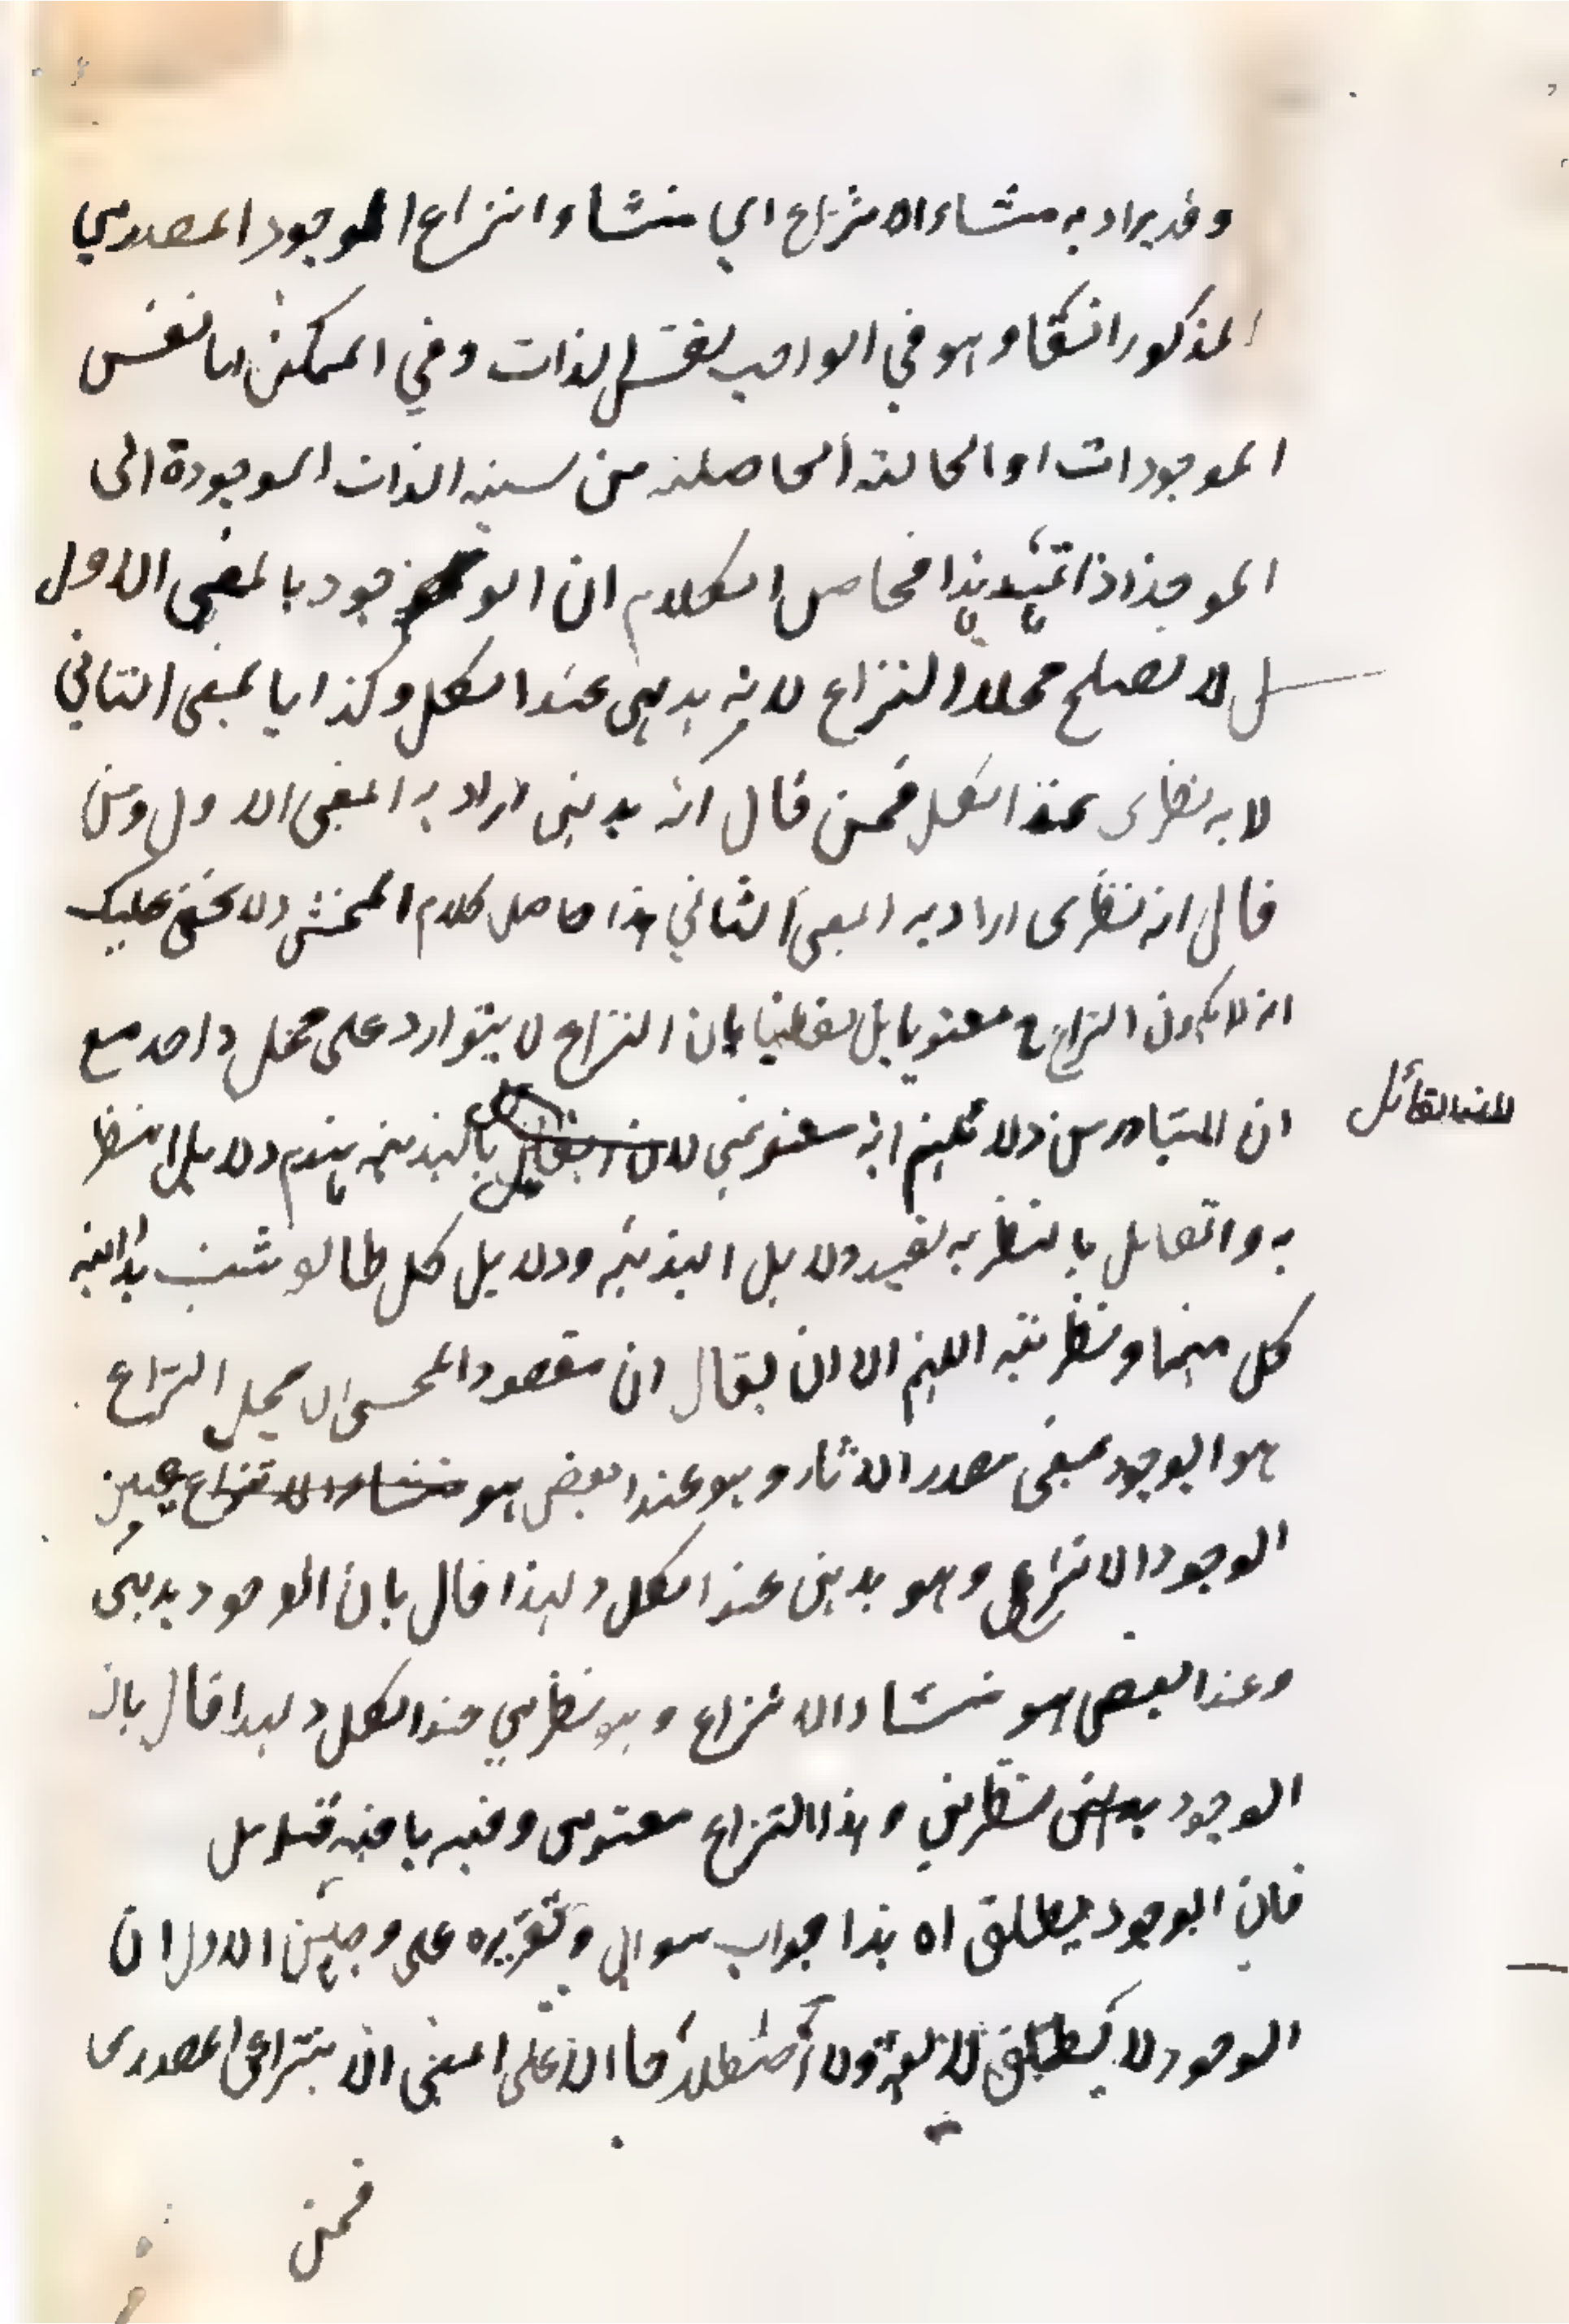 وقد يراد به منشاء الانتزاع اي منشاء انتزاع الموجود المصدري
المذكور انفكا وهو في الواجب نفس الذات وفي الممكن اما نفس
الموجودات او الحالة الحاصلة من نسبة الذات الموجودة الى
الموجد اذا تمهد هذا فحاصل الكلام ان الوجود بالمعنى الاول
لا تصلح محلا النزاع لانه بديهي عند الكل وكذا بالمعنى الثاني
لا به نظرى عند الكل فمن قال انه بديهي اراد به المعنى الاول ومن
قال انه نظرى اراد به المعنى الثاني هذا حاصل كلام المحشى ولا يخفى عليك
انه لا يكون النزاع ح معنويا بل لفظيا بان النزاع لا يتوارد على محل واحد مع
ان المتبادر من دلائلهم انه معنوي لان القائل بالبديهة يهدم دلايل النظر
للقائل
يه والقايل بالنظريه يفسد دلايل البديهة ودلايل كل طالو بداهة
كل منهما ونظريته اللهم الا ان يقال ان مقصود المحسى ان محل النزاع
هو الوجود بمعنى مصدر الاثار وهو عند البعض هو منشاء الانتزاع عين
الوجود الانتزاعى وهو بديهى عند الكل ولهذا قال بان الوجود بديهى
وعند البعض هو منشاء الانتزاع وهو نظري عند الكل ولهذا قال بان
الوجود بديهى نظري وهذا النزاع معنوى وفيه ما فيه فتامل
فان الوجود يطلق اه هذا جواب سوال وتقريره على وجهين الاول ان
الوجود لا يطلق اصطلاحا الا على المعنى الانتزاعى المصدرى
فمن